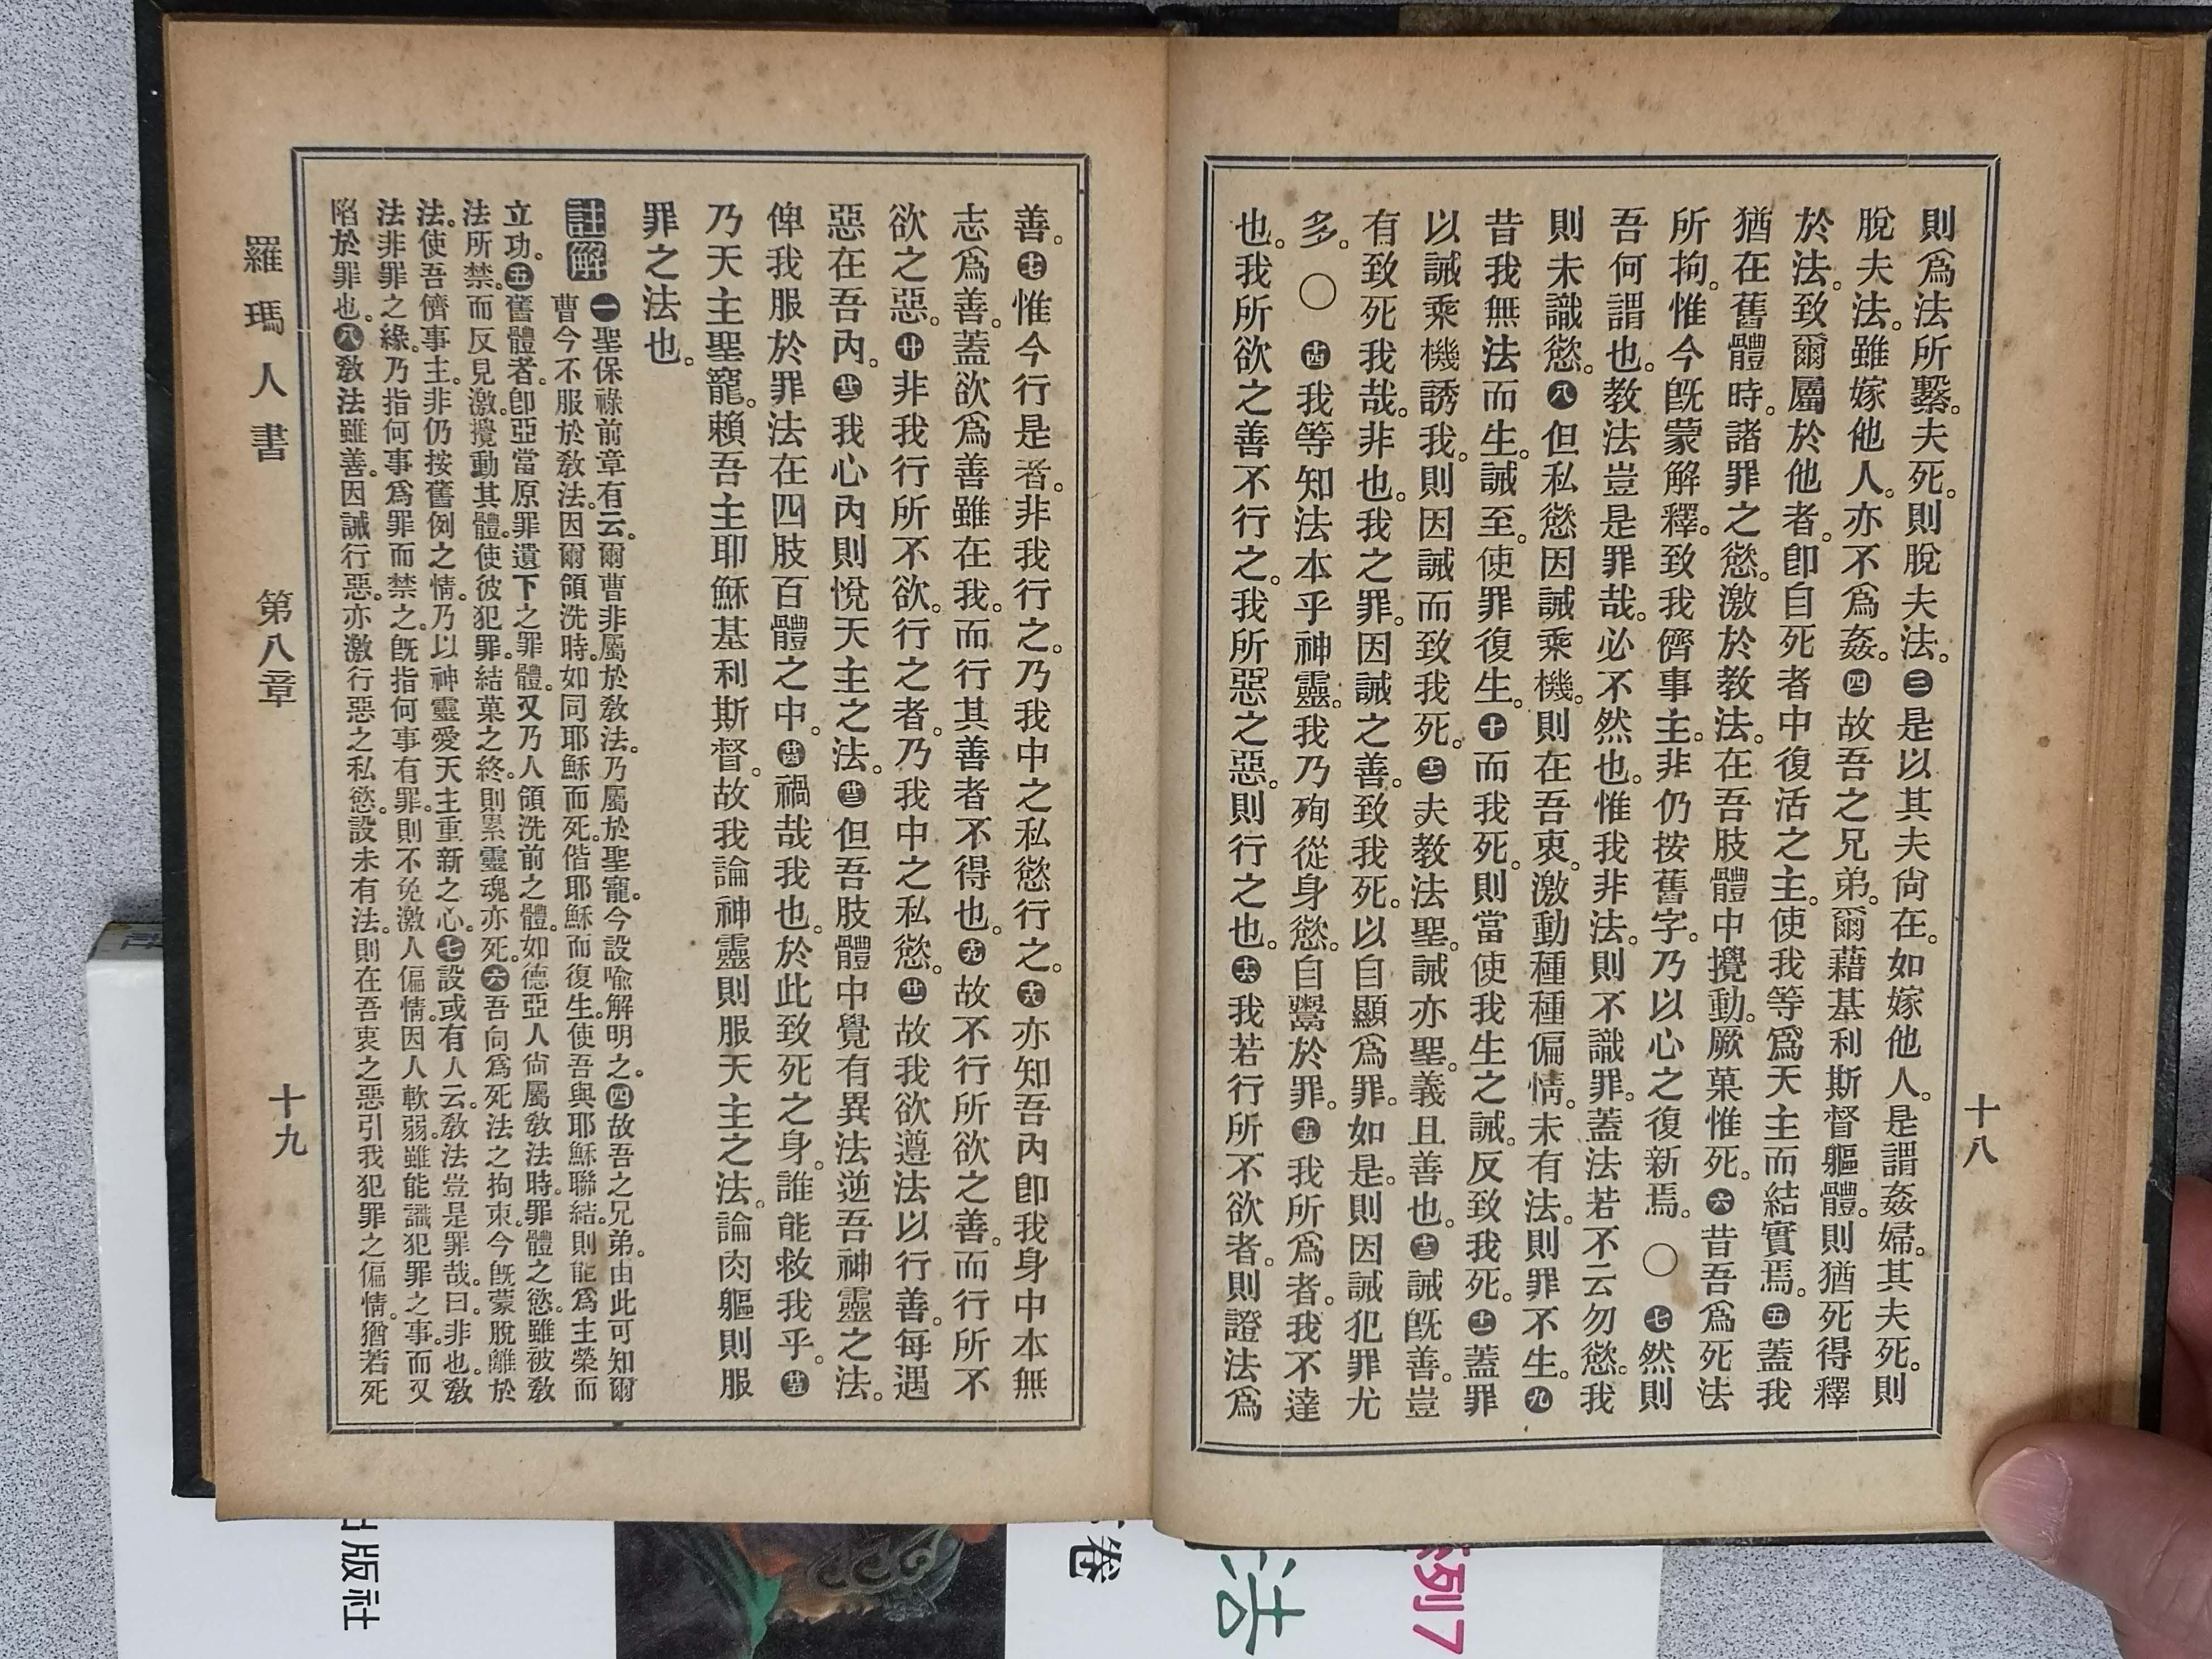 則爲法所繫。夫死。則脫夫法。㊂是以其夫尙在。如嫁他人。是謂姦婦。其夫死。則
脫夫法。雖嫁他人。亦不爲姦。㊃故吾之兄弟。爾藉基利斯督軀體。則猶死得釋
於法。致爾屬於他者。卽自死者中復活之主。使我等爲天主而結實焉。㊄蓋我
猶在舊體時。諸罪之慾。激於教法。在吾肢體中攪動。厥菓惟死。㊅昔吾爲死法
所拘。惟今旣蒙解釋。致我儕事主。非仍按舊字。乃以心之復新焉。〇㊆然則
吾何謂也。教法豈是罪哉。必不然也。惟我非法。則不識罪。蓋法若不云勿慾。我
則未識慾。㊇但私慾因誡乘機。則在吾衷。激動種種偏情。未有法。則罪不生。㊈
昔我無法而生。誡至。使罪復生。㊉而我死。則當使我生之誡。反致我死。⑪蓋罪
以誡乘機誘我。則因誡而致我死。⑫夫教法聖。誡亦聖。義且善也。⑬誡旣善。豈
有致死我哉。非也。我之罪。因誡之善。致我死。以自顯爲罪。如是。則因誡犯罪尤
多。〇⑭我等知法本乎神靈。我乃殉從身慾。自鬻於罪。⑮我所爲者。我不達
也。我所欲之善不行之。我所惡之惡。則行之也。⑯我若行所不欲者。則證法爲
十八
善。⑰惟今行是者。非我行之。乃我中之私慾行之。⑱亦知吾內卽我身中本無
志爲善。蓋欲爲善雖在我。而行其善者不得也。⑲故不行所欲之善。而行所不
欲之惡。⑳非我行所不欲。行之者。乃我中之私慾。㉑故我欲遵法以行善。每遇
惡在吾內。㉒我心內則悅天主之法。㉓但吾肢體中覺有異法逆吾神靈之法。
俾我服於罪法在四肢百體之中。㉔禍哉我也。於此致死之身。誰能救我乎。㉕
乃天主聖寵。賴吾主耶穌基利斯督。故我論神靈則服天主之法。論肉軀則服
罪之法也。
註解
㊀聖保祿前章有云。爾曹非屬於教法。乃屬於聖寵。今設喩解明之。㊃故吾之兄弟。由此可知爾
曹今不服於教法。因爾領洗時。如同耶穌而死。偕耶穌而復生。使吾與耶穌聯結。則能爲主榮而
立功。㊄舊體者。卽亞當原罪遺下之罪體。又乃人領洗前之體。如德亞人尙屬教法時。罪體之慾。雖被教
法所禁。而反見激。攪動其體。使彼犯罪。結菓之終。則累靈魂亦死。㊅吾向爲死法之拘束。今旣蒙脫離於
法。使吾儕事主。非仍按舊例之情。乃以神靈愛天主重新之心。㊆設或有人云。教法豈是罪哉。曰。非也。教
法非罪之緣。乃指何事爲罪而禁之。旣指何事有罪。則不免激人偏情。因人軟弱。雖能識犯罪之事。而又
陷於罪也。㊇教法雖善。因誡行惡。亦激行惡之私慾。設未有法。則在吾衷之惡引我犯罪之偏情。猶若死
羅瑪人書 第八章 十九
出版社
卷
法
列7